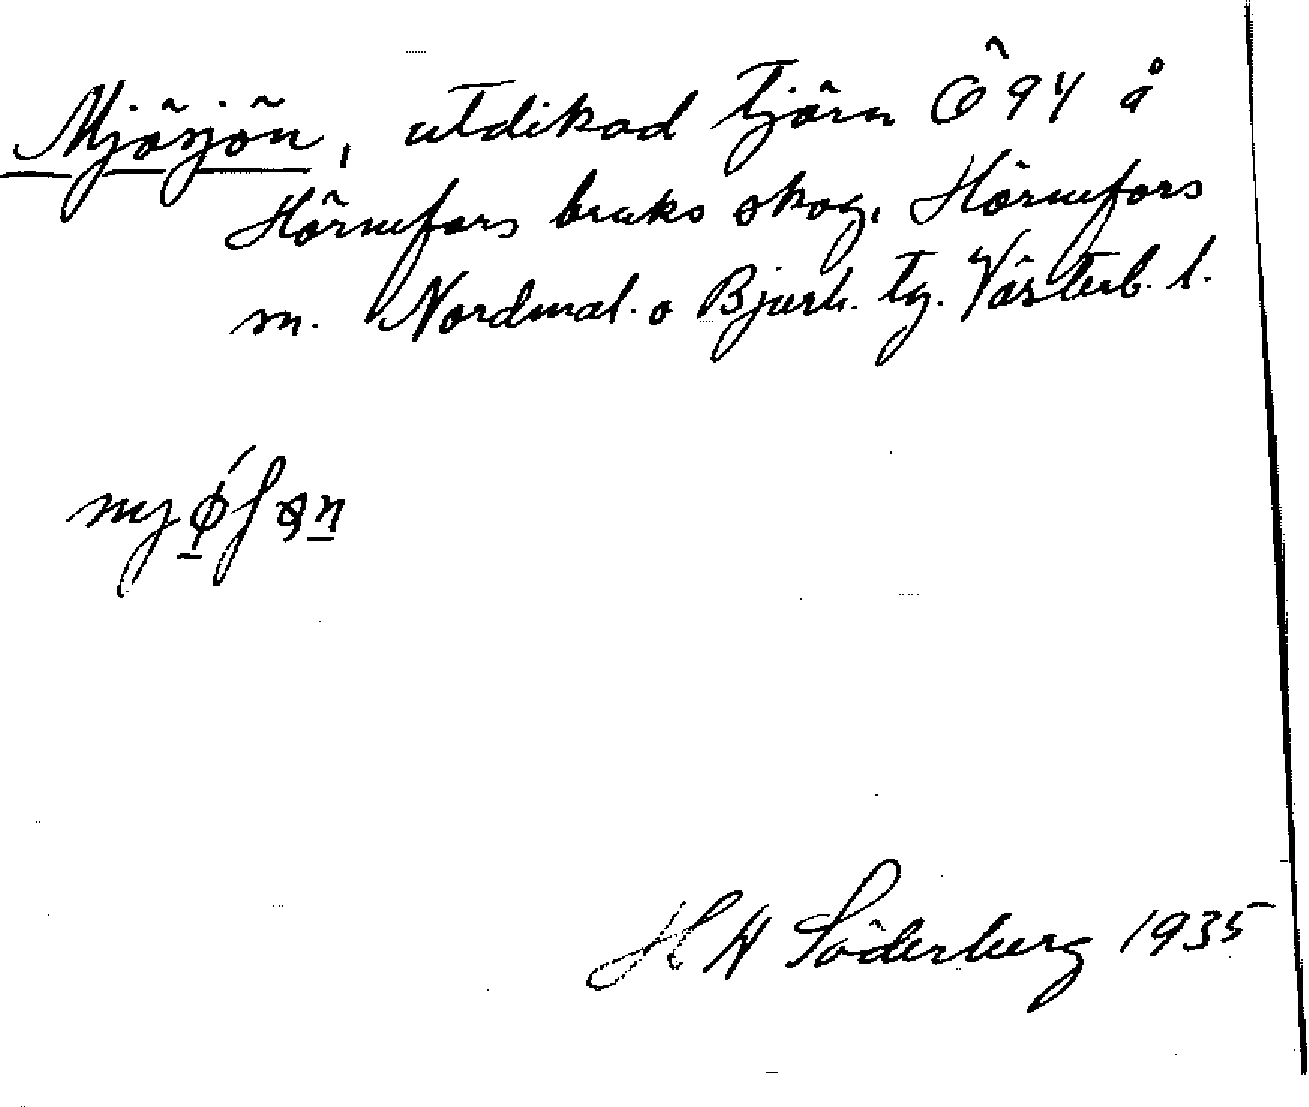 Mjösjön, utdikad tjärn Ö 94 å
Hörnefors bruks skog, Hörnefors
sn. Nordmal. o Bjurh. tg. Västerb. l.
H W Söderberg 1935